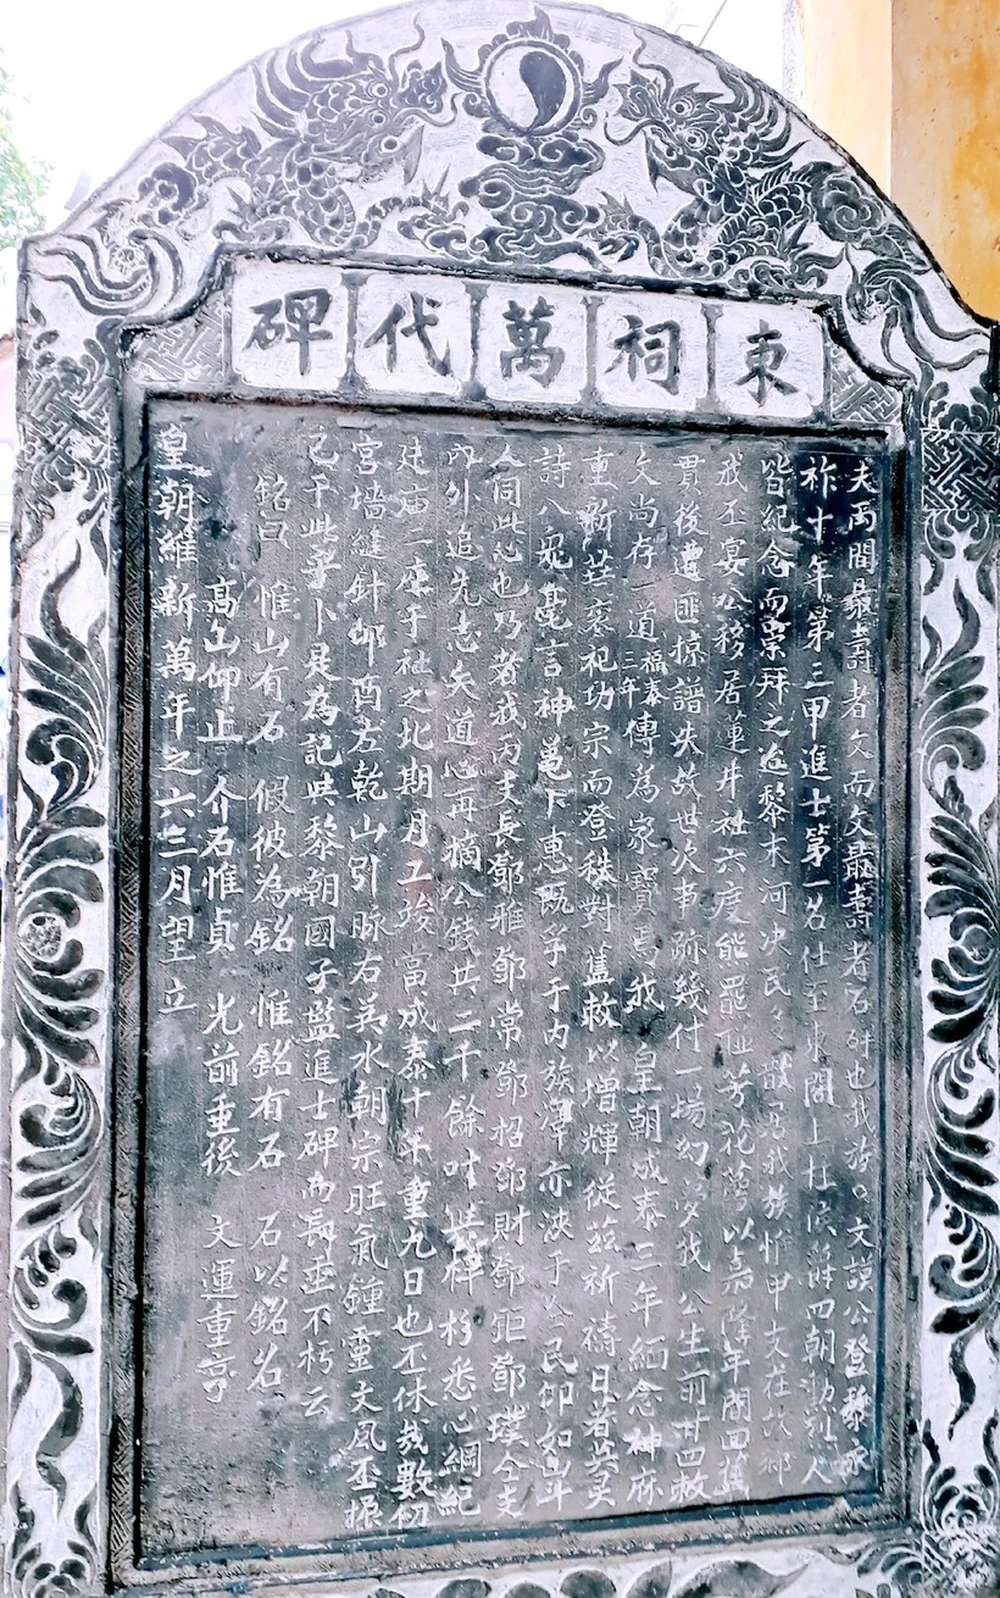 東祠萬代碑
夫兩間最壽者文而文最壽者石碑也我族文謨公登黎
祚十年第三甲進士第一名仕至東閣上柱四朝勳烈人
皆紀念而崇拜之迨黎末河决民散居我族惟甲支在故鄉
戎丕宴公移居蓮井社六度能羆芳花萼以嘉隆年間回舊
貫後遭匪掠譜失故世次事跡幾付一場幻夢我公生前廿四敕
文尚存一道福泰三年傳為家寶焉我皇朝成泰三年緬念神庥
重新茲褒祀功宗而登秩對舊敕以增輝從茲祈禱日著其灵
詩八鬼耄言神黽卜惠既孚于內族澤亦浹于全民仰如山斗
人同此心也乃者我丙支長鄧雅鄧常鄧招鄧財鄧鉅鄧璞仝支
內外追先志矢道心再摘公錢共二千餘吋悉心綱紀
建庙二座于社之北期月工竣當成泰十年重九日也丕休哉數仞
宮墻縫針邜酉左乾山引脈右英水朝宗旺氣鍾靈文風丕振
已于此乎卜是為記與黎朝國子監進士碑而長垂不朽云
銘曰 惟山有石 假彼為銘 惟銘有石 石以銘名
高山仰止 介石惟貞 光前垂後 文運重亨
皇朝維新萬年之六三月望立